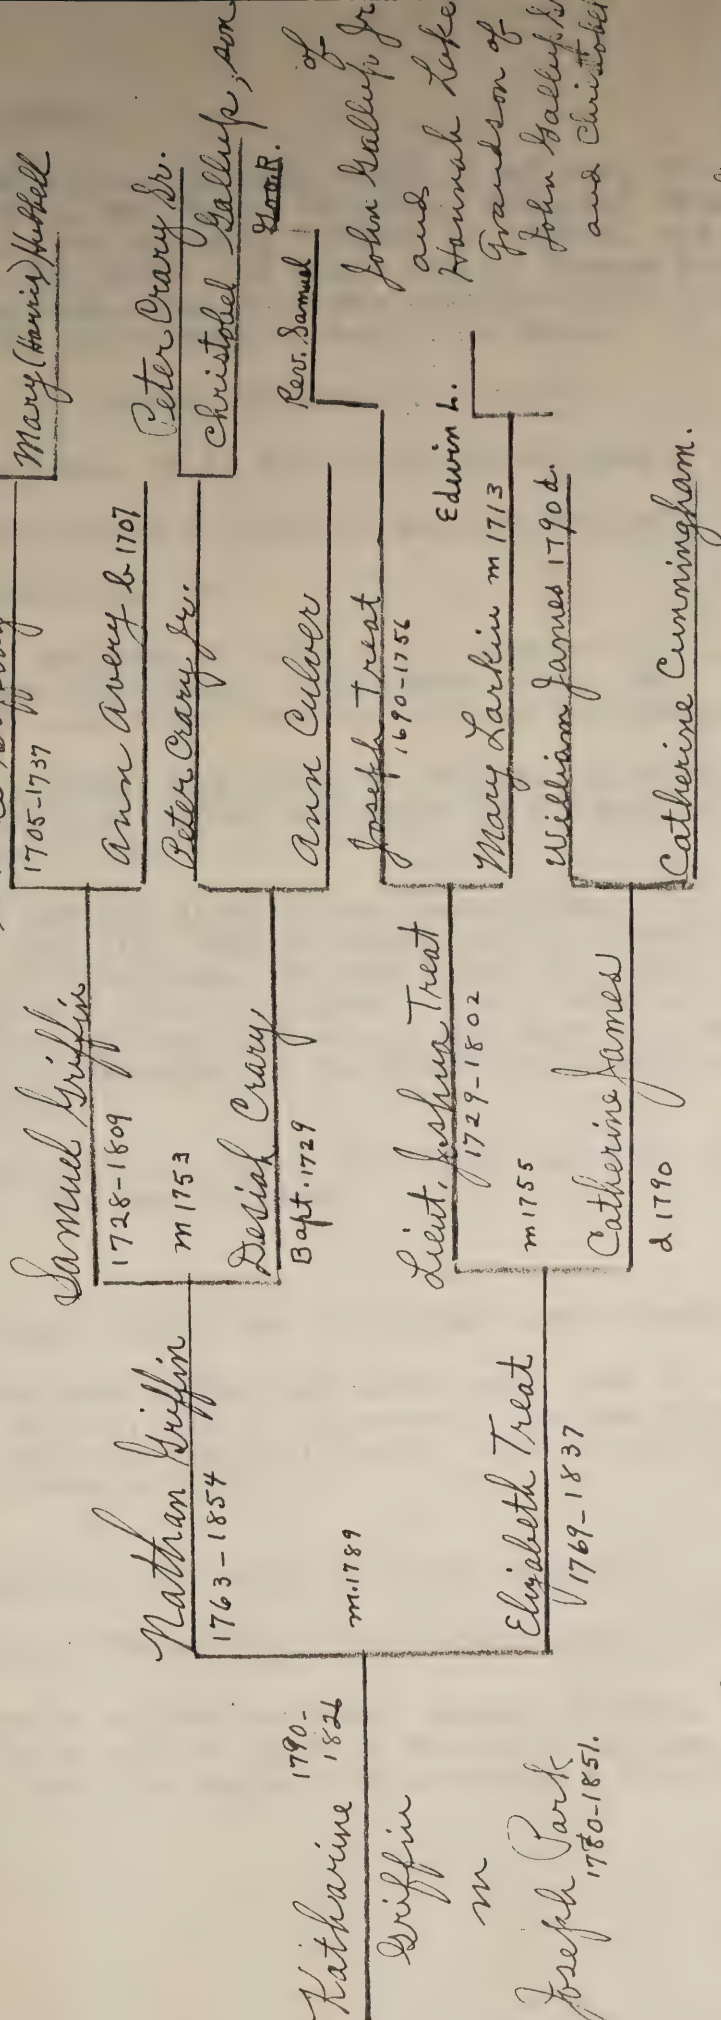 Katharine 1790-
1826
Griffin
m
Joseph Park
1780-1851.
Nathan Griffin
1763-1854
m.1789
Elizabeth Treat
1769-1837
Samuel Griffin
1728-1809
m 1753
Desiah Crary
Bapt. 1729
Lieut. Joshua Treat
1729-1802
m 1755
Catherine James
d 1790
1705-1737
Ann Avery b 1707
Peter Crary Jr.
Ann Culver
Joseph Treat
1690-1756
Mary Larkin m 1713
William James 1790 d.
Catherine Cunningham.
Mary (Harris) Hubbell
Peter Crary Sr.
Christobel Gallup, son
Rev. Samuel
Edwin L.
of
John Gallup Jr
and
Hannah Lake
Grandson of
John Gallup S
and Christobel